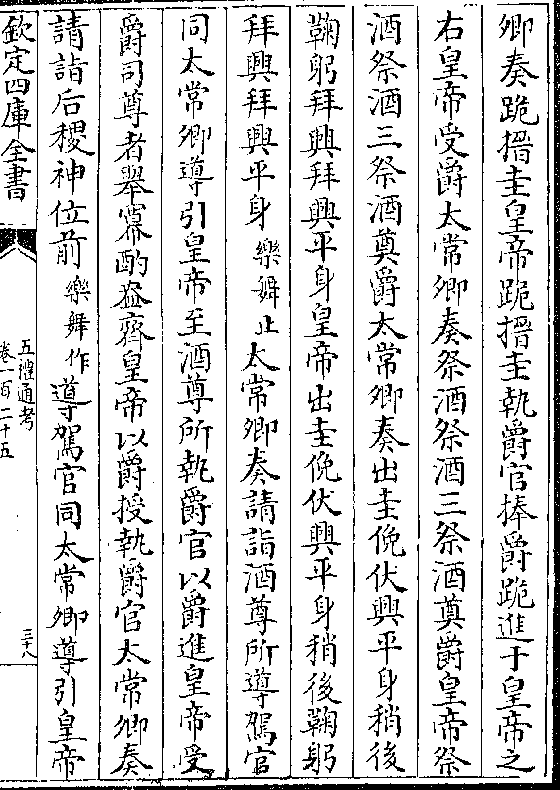 卿奏跪搢圭皇帝跪搢圭執爵官捧爵跪進于皇帝之
右皇帝受爵太常卿奏祭酒祭酒三祭酒奠爵皇帝祭
酒祭酒三祭酒奠爵太常卿奏出圭俛伏興平身稍後
鞠躬拜興拜興平身皇帝出圭俛伏興平身稍後鞠躬
拜興拜興平身樂舞止太常卿奏請詣酒尊所導駕官
同太常卿導引皇帝至酒尊所執爵官以爵進皇帝受
爵司尊者舉冪酌盎齊皇帝以爵授執爵官太常卿奏
請詣后稷神位前樂舞作導駕官同太常卿導引皇帝
欽定四庫全書
五禮通考
卷一百二十五
三十八